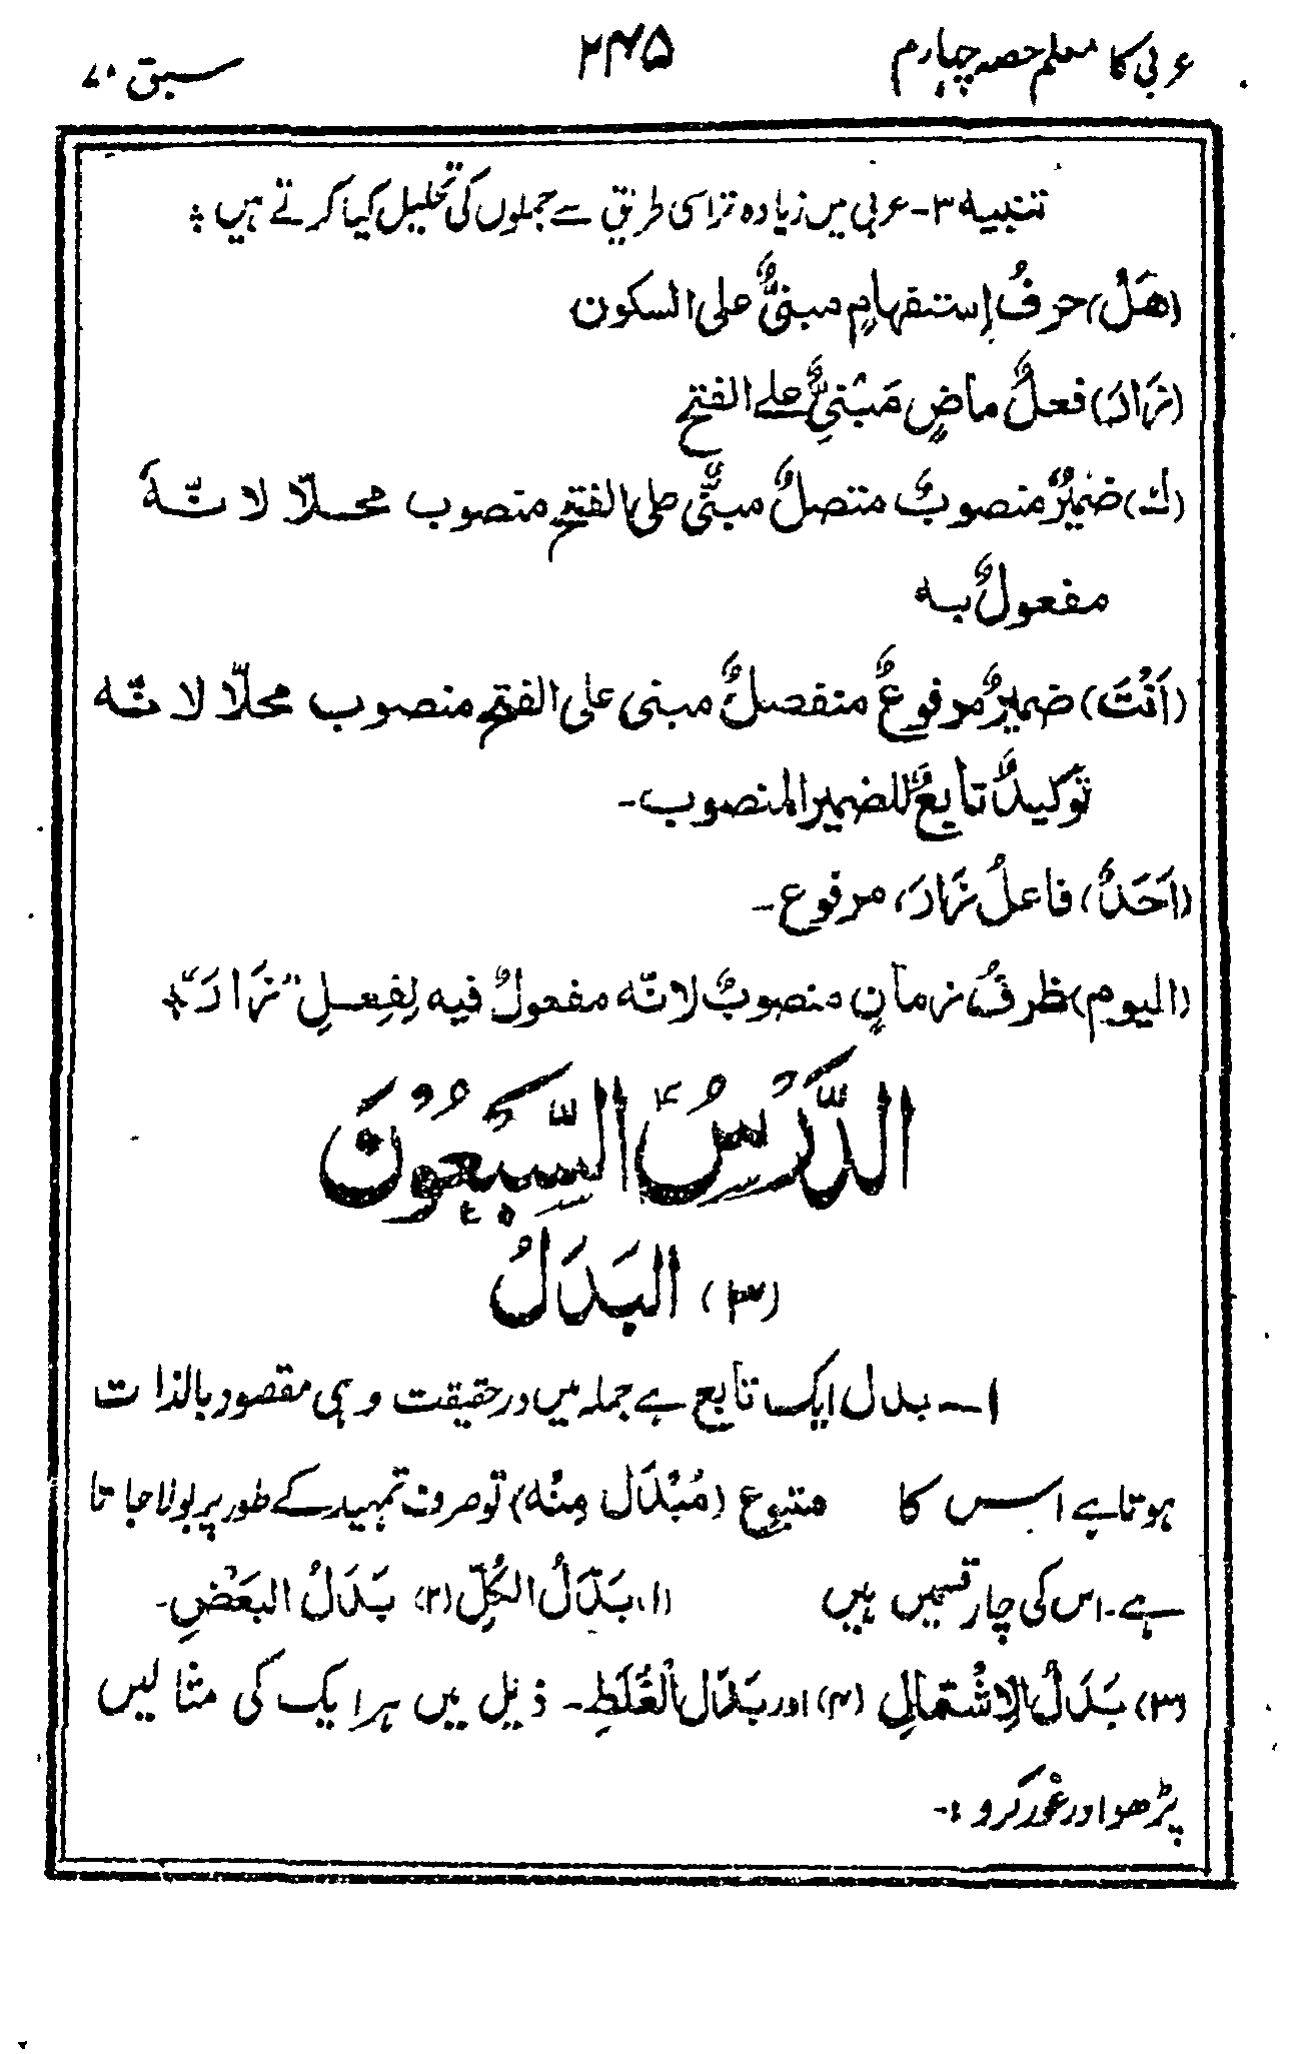 عربی کا معلم حصہ چہارم ۲۴۵ سبق ۷۰
تنبیہ ۳- عربی میں زیادہ تر اسی طریق سے جملوں کی تحلیل کیا کرتے ہیں :
(هَلْ) حرفُ إستفهامٍ مبنىٌّ على السكون
(زَارَ) فعلٌ ماضٍ مَبْنِىٌّ على الفتح
(ك) ضميرٌ منصوبٌ متصلٌ مبنىٌّ على الفتح منصوب محلّا لانّهٗ
مفعولٌ به
(اَنْتَ) ضميرٌ مرفوعٌ منفصلٌ مبنى على الفتح منصوب محلّا لانّه
توكيدٌ تابعٌ للضمير المنصوب-
(اَحَدٌ) فاعلُ زَارَ، مرفوع-
(اليوم) ظرفُ زمانٍ منصوبٌ لانّه مفعولٌ فيه لِفِعلِ "زَارَ"
الدَّرْسُ السَّبْعُوْنَ
(۳) البَدَلُ
۱- بدل ایک تابع ہے جملہ میں درحقیقت وہی مقصود بالذات
ہوتا ہے اس کا متبوع (مُبْدَل مِنْه) تو صرف تمہید کے طور پر بولا جاتا
ہے۔ اس کی چار قسمیں ہیں (۱) بَدَلُ الكُلِّ (۲) بَدَلُ البَعْضِ-
(۳) بَدَلُ الاِشْتمالِ (۴) اور بَدَلُ الْغَلَطِ- ذیل میں ہر ایک کی مثالیں
پڑھو اور غور کرو :-